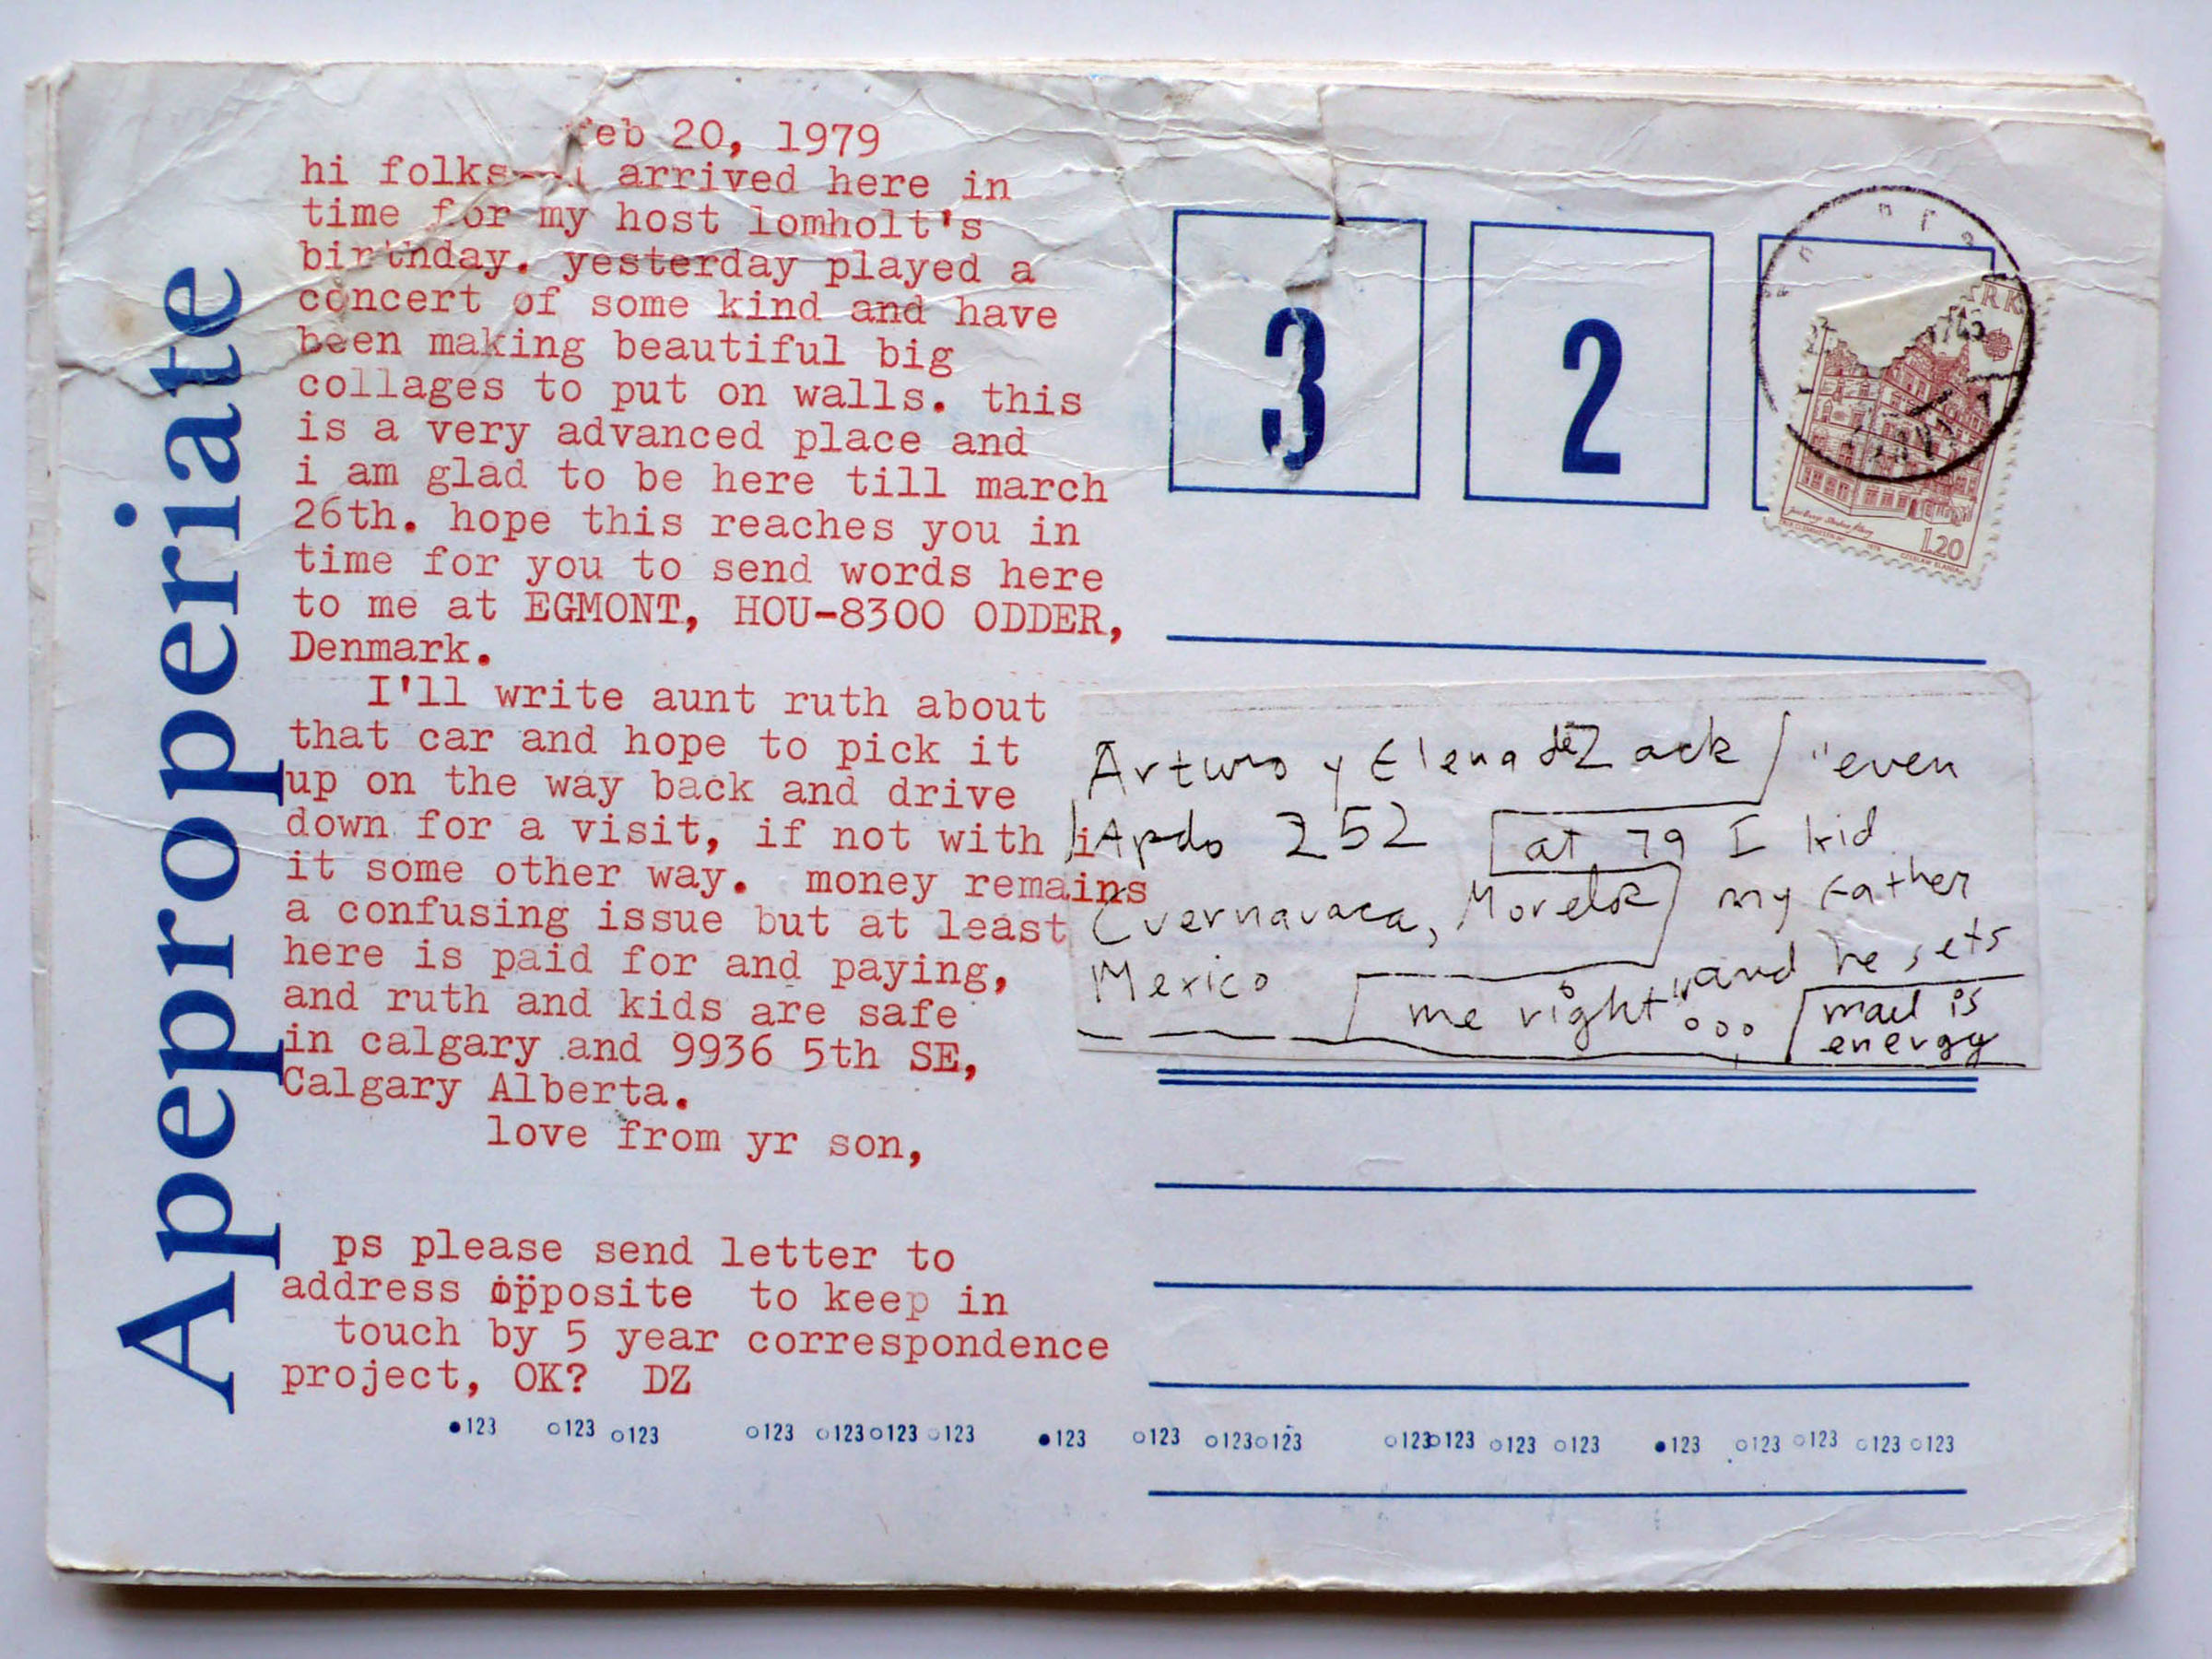 Apeproperiate
feb 20, 1979
hi folks--i arrived here in
time for my host lomholt's
birthday. yesterday played a
concert of some kind and have
been making beautiful big
collages to put on walls. this
is a very advanced place and
i am glad to be here till march
26th. hope this reaches you in
time for you to send words here
to me at EGMONT, HOU-8300 ODDER,
Denmark.
I'll write aunt ruth about
that car and hope to pick it
up on the way back and drive
down for a visit, if not with i
it some other way. money remains
a confusing issue but at least
here is paid for and paying,
and ruth and kids are safe
in calgary and 9936 5th SE,
Calgary Alberta.
love from yr son,
ps please send letter to
address opposite to keep in
touch by 5 year correspondence
project, OK? DZ
3 2
RK
1.20
Arturo y Elena de Zack
Apdo 252
Cuernavaca, Morelos
Mexico
"even
at 79 I kid
my father
and he sets
me right"
mail is
energy
●123 ○123 ○123 ○123 ○123 ○123 ○123 ●123 ○123 ○123 ○123 ○123 ○123 ○123 ○123 ●123 ○123 ○123 ○123 ○123